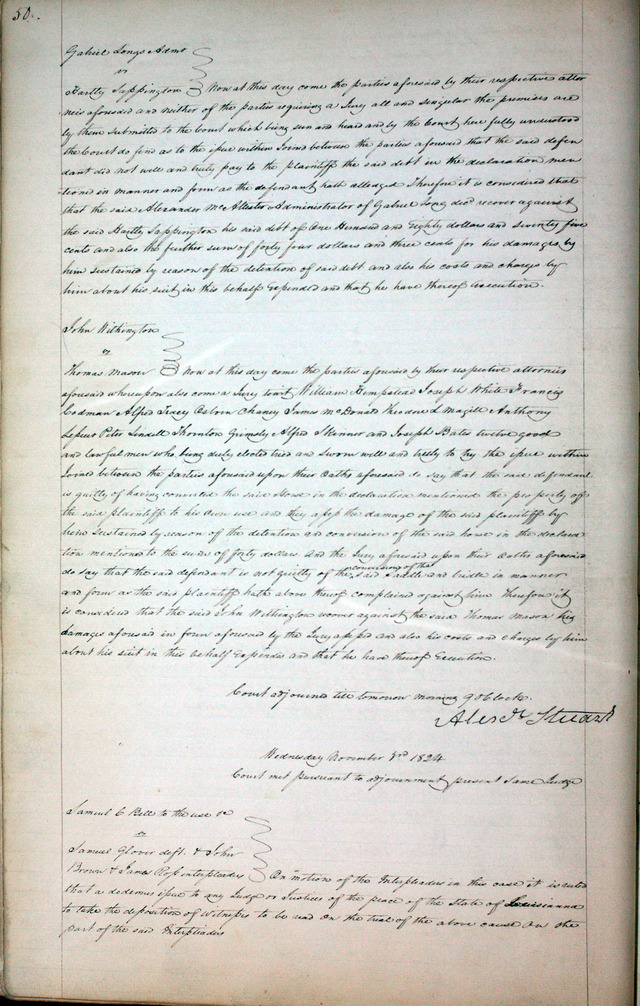 50.
Gabriel Longs Admr
vs
Hartly Sappington Now at this day come the parties aforesaid by their respective attor
neis aforesaid and neither of the parties requiring a Jury all and singular the premises are
by them submitted to the Court which being seen and heard and by the Court here fully understood
the Court do find as to the issue within Joined between the parties aforesaid that the said defen
dant did not well and truly pay to the plaintiff the said debt in the declaration men
tioned in manner and form as the defendant hath alledged Therefore it is considered that
that the said Alexander McAllister Administrator of Gabriel Long decd recover against
the said Hartly Sappington his said debt of One Hundred and Eighty dollars and seventy five
cents and also the further sum of forty four dollars and three cents for his damages by
him sustained by reason of the detention of said debt and also his costs and charges by
him about his suit in this behalf Expended and that he have thereof execution.
John Withington
vs
Thomas Mason Now at this day come the parties aforesaid by their respective attornies
aforesaid whereupon also come a Jury towit William Hempstead Joseph White Francis
Codman Alfred Tracy Calvin Chaney James McDonald Theodore Magill Anthony
Peter Lindell Thornton Grimsly Alfred Skinner and Joseph Bates twelve good
and lawful men who being duly elected tried and sworn well and truly to try the issue within
Joined between the parties aforesaid upon their Oaths aforesaid do say that the said defendant
is guilty of having converted the said Horse in the declaration mentioned the property of
the said plaintiff to his own use and they assess the damage of the said plaintiff by
him sustained by reason of the detention and conversion of the said horse in the declara
tion mentioned to the sum of forty dollars. And the Jury aforesaid upon their Oaths aforesaid
do say that the said defendant is not guilty of the conversion of the said saddle and bridle in manner
and form as the said plaintiff hath above thereof complained against him Therefore it
is considered that the said John Withington recover against the said Thomas Mason his
damages aforesaid in form aforesaid by the Jury assessed and also his costs and charges by him
about his suit in this behalf Expended and that he have thereof Execution.
Court adjourned till tomorrow morning 9 OClock.
Alexr Stuart
Wednesday November 3rd 1824
Court met pursuant to adjournment present same Judge
Samuel C Bell to the use &c
vs
Samuel Glover deft. & John
Brown & James Ross interpleaders On motion of the Interpleaders in this case it is ruled
that a dedimus issue to any Judge or Justices of the peace of the State of Louisianna
to take the deposition of Witnesses to be read on the trial of the above cause on the
part of the said Interpleaders